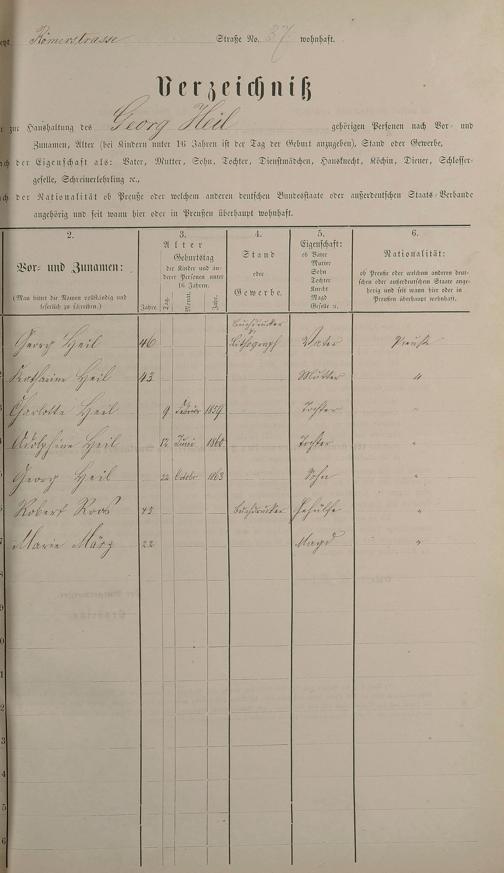 Römerstrasse Straße No. 37 wohnhaft.
Verzeichniß
zur Haushaltung des Georg Heil gehörigen Personen nach Vor- und
Zunamen, Alter (bei Kindern unter 16 Jahren ist der Tag der Geburt anzugeben), Stand oder Gewerbe,
der Eigenschaft als: Vater, Mutter, Sohn, Tochter, Dienstmädchen, Hausknecht, Köchin, Diener, Schlosser-
geselle, Schreinerlehrling ꝛc.,
der Nationalität ob Preuße oder welchem anderen deutschen Bundesstaate oder außerdeutschen Staats-Verbande
angehörig und seit wann hier oder in Preußen überhaupt wohnhaft.
2. 3. 4. 5. 6.
Vor- und Zunamen:
(Man bittet die Namen vollständig und
leserlich zu schreiben.)
Alter
Geburtstag
der Kinder und an-
derer Personen unter
16 Jahren
Jahre Tag. Monat. Jahr.
Stand
oder
Gewerbe.
Eigenschaft:
ob Vater
Mutter
Sohn
Tochter
Knecht
Magd
Geselle u.
Nationalität:
ob Preuße oder welchem anderen deut-
schen oder außerdeutschen Staate ange-
hörig und seit wann hier oder in
Preußen überhaupt wohnhaft.
Buchdrucker
Georg Heil 46 Lithograph Vater Preuße
2 Katharine Heil 43 Mutter "
3 Charlotte Heil 9 Februar 1859 Tochter "
4 Adolphine Heil 12 Junie 1860 Tochter "
5 Georg Heil 22 Octobr 1863 Sohn "
6 Robert Roos 43 Buchdrucker Gehülfe "
7 Marie März 22 Magd "
8
9
0
1
2
3
4
5
6